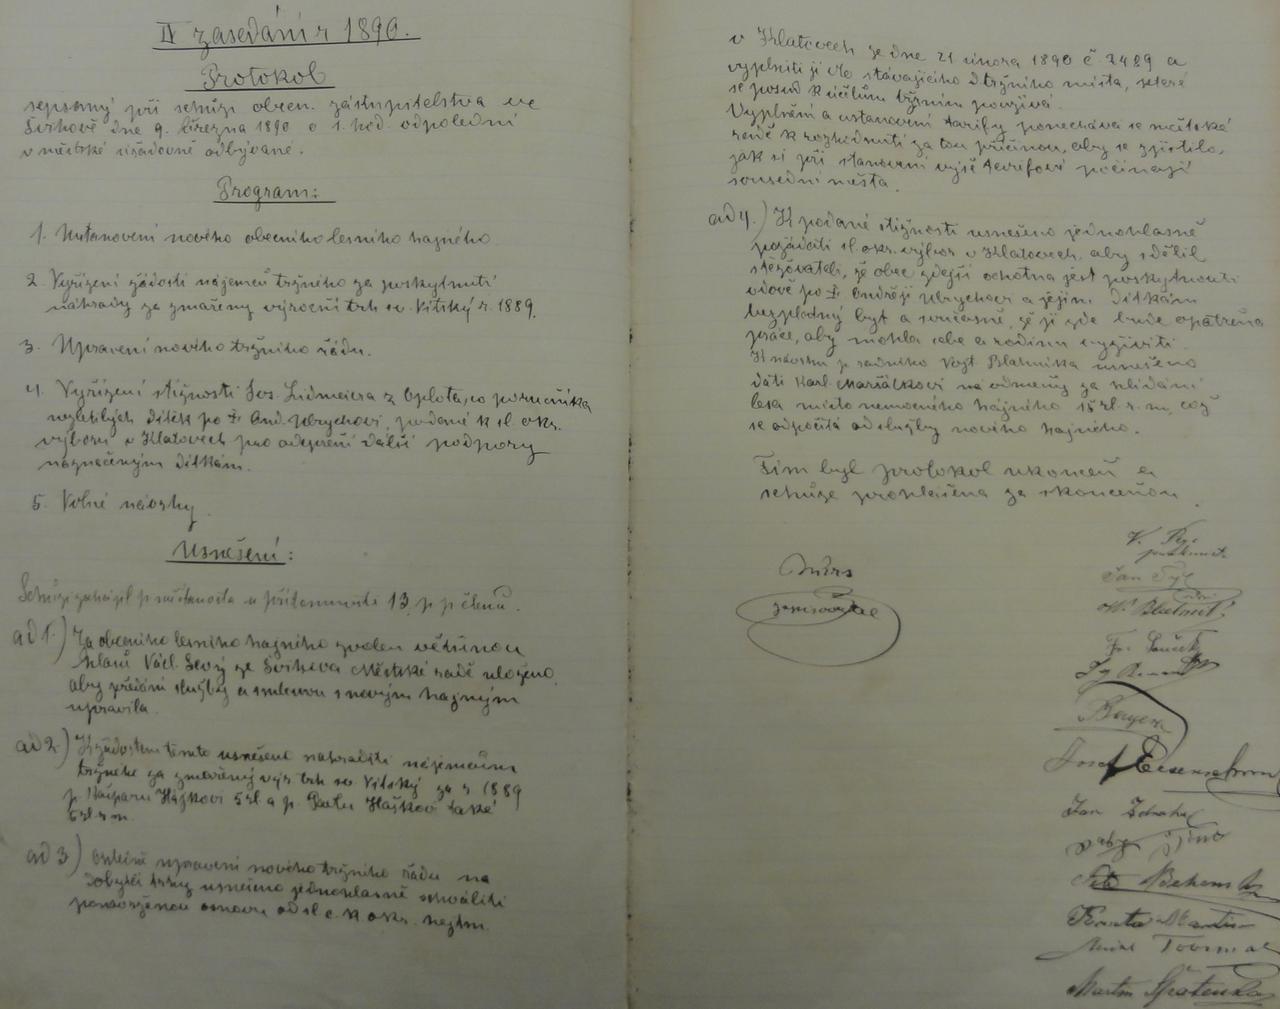 IV zasedání r 1890.
Protokol
sepsaný při schůzi obecn. zástupitelstva ve
Švihově dne 9. března 1890 o 1. hod. odpolední
v městské úřadovně odbývané.
Program:
1. Ustanovení nového obecního lesního hajného
2. Vyřízení žádosti nájemců tržného za poskytnutí
náhrady za zmařený výroční trh sv. Vítský r. 1889.
3. Upravení nového tržního řádu.
4. Vyřízení stížnosti Jos. Lidmeiera z poručníka
nezletilých dítěk po ✝ And. Uhrychovi, podané k sl. okr.
výboru v Klatovech pro odepření další podpory
naznačeným dítkám.
5. Volné návrhy.
Usnešení:
Schůzi zahájil p. starosta u přítomnosti 13 p. p. členů.
ad 1.) Za obecního lesního hajného zvolen většinou
hlasů Václ. Levý ze Švihova Městské radě uloženo,
aby předání služby a smlouvu s novým hajným
upravila.
ad 2.) K žádosti této usnešeno nahraditi nájemcům
tržného za zmařený výr. trh sv. Vítský za r 1889
p. Kašparu Hájkovi 5 zl. a p. Pavlu Haškovi také
5 zl. r. m.
ad 3.) upravení nového tržního řádu na
dobytčí trhy usnešeno jednohlasně schváliti
potvrzenou osnovu od sl. c. k. okr. hejtm.
v Klatovech ze dne 21 února 1890 č. 2489 a
vyplniti ji dle stávajícího tržního místa, které
se posud k účelům tržním používá.
Vyplnění a ustanovení tarify ponechává se městské
radě k rozhodnutí za tou příčinou, aby se zjistilo,
jak si při stanovení výše tarifové počínají
sousední města.
ad 4.) K podané stížnosti usnešeno jednohlasně
požádati sl. okr. výbor v Klatovech, aby sdělil
stěžovateli, že obec zdejší ochotna jest poskytnouti
vdově po ✝ Ondřeji Uhrychovi a jejím dítkám
bezplatný byt a současně, že jí zde bude opatřena
práce, aby mohla sebe a rodinu vyživiti.
K návrhu p. radního Vojt. Blahníka usnešeno
dáti Karl. Maršálkovi na odměnu za hlídání
lesa místo nemocného hajného 15 zl. r. m., což
se odpočítá od služby nového hajného.
Tím byl protokol ukončen a
schůze prohlášena za skončenou.
zapisovatel
V.
Jan Týl
radní
Fr. Souček
Berger
Josef
Jan
Martin